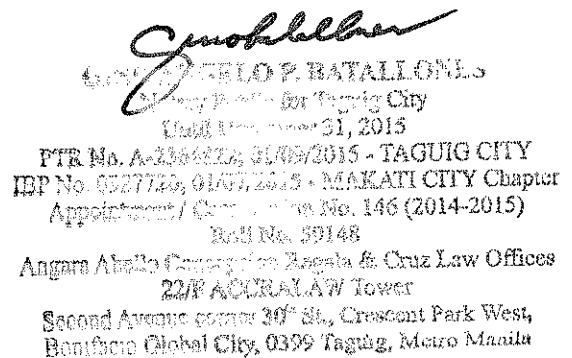 P. BATALLONES
Notary Public for Taguig City
Until 31, 2015
PTR No. 2015 - TAGUIG CITY
IBP No. MAKATI CITY Chapter
Appointment / No. 146 (2014-2015)
Roll No. 59148
Angara Abello Concepcion Regala & Cruz Law Offices
22/F ACCRALAW Tower
Second Avenue corner 30th St., Crescent Park West,
Bonifacio Global City, 0399 Taguig, Metro Manila